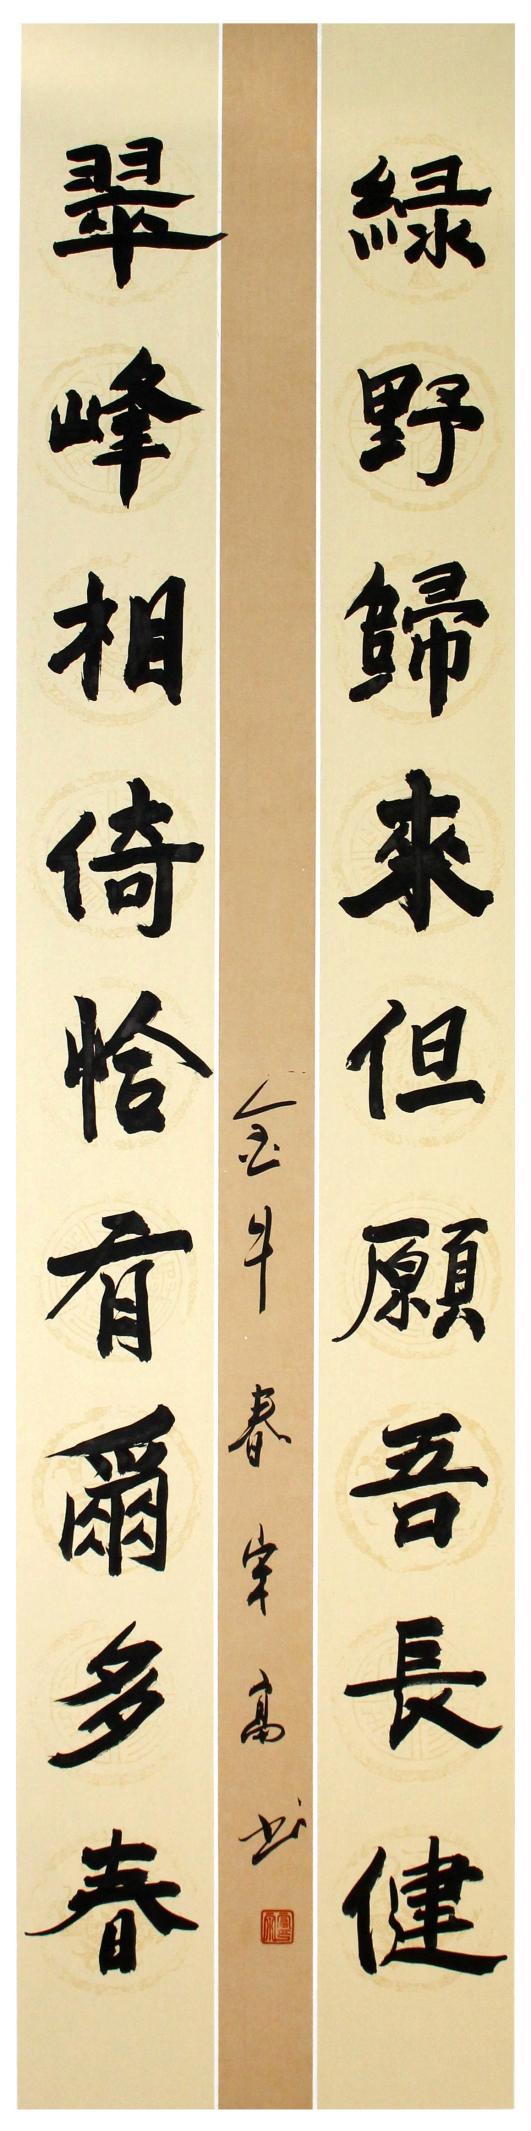 綠野歸來但願吾長健
翠峰相倚恰有爾多春
金牛春宋高书